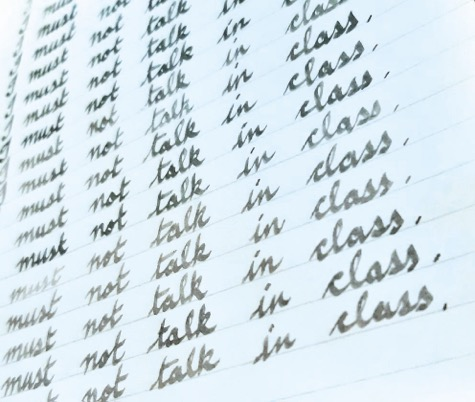 must
must not
must not talk
must not talk in
must not talk in
must not talk in class
must not talk in class.
must not talk in class.
must not talk in class.
must not talk in class.
must not talk in class.
must not talk in class.
must not talk in class.
must not talk in class.
not talk in class.